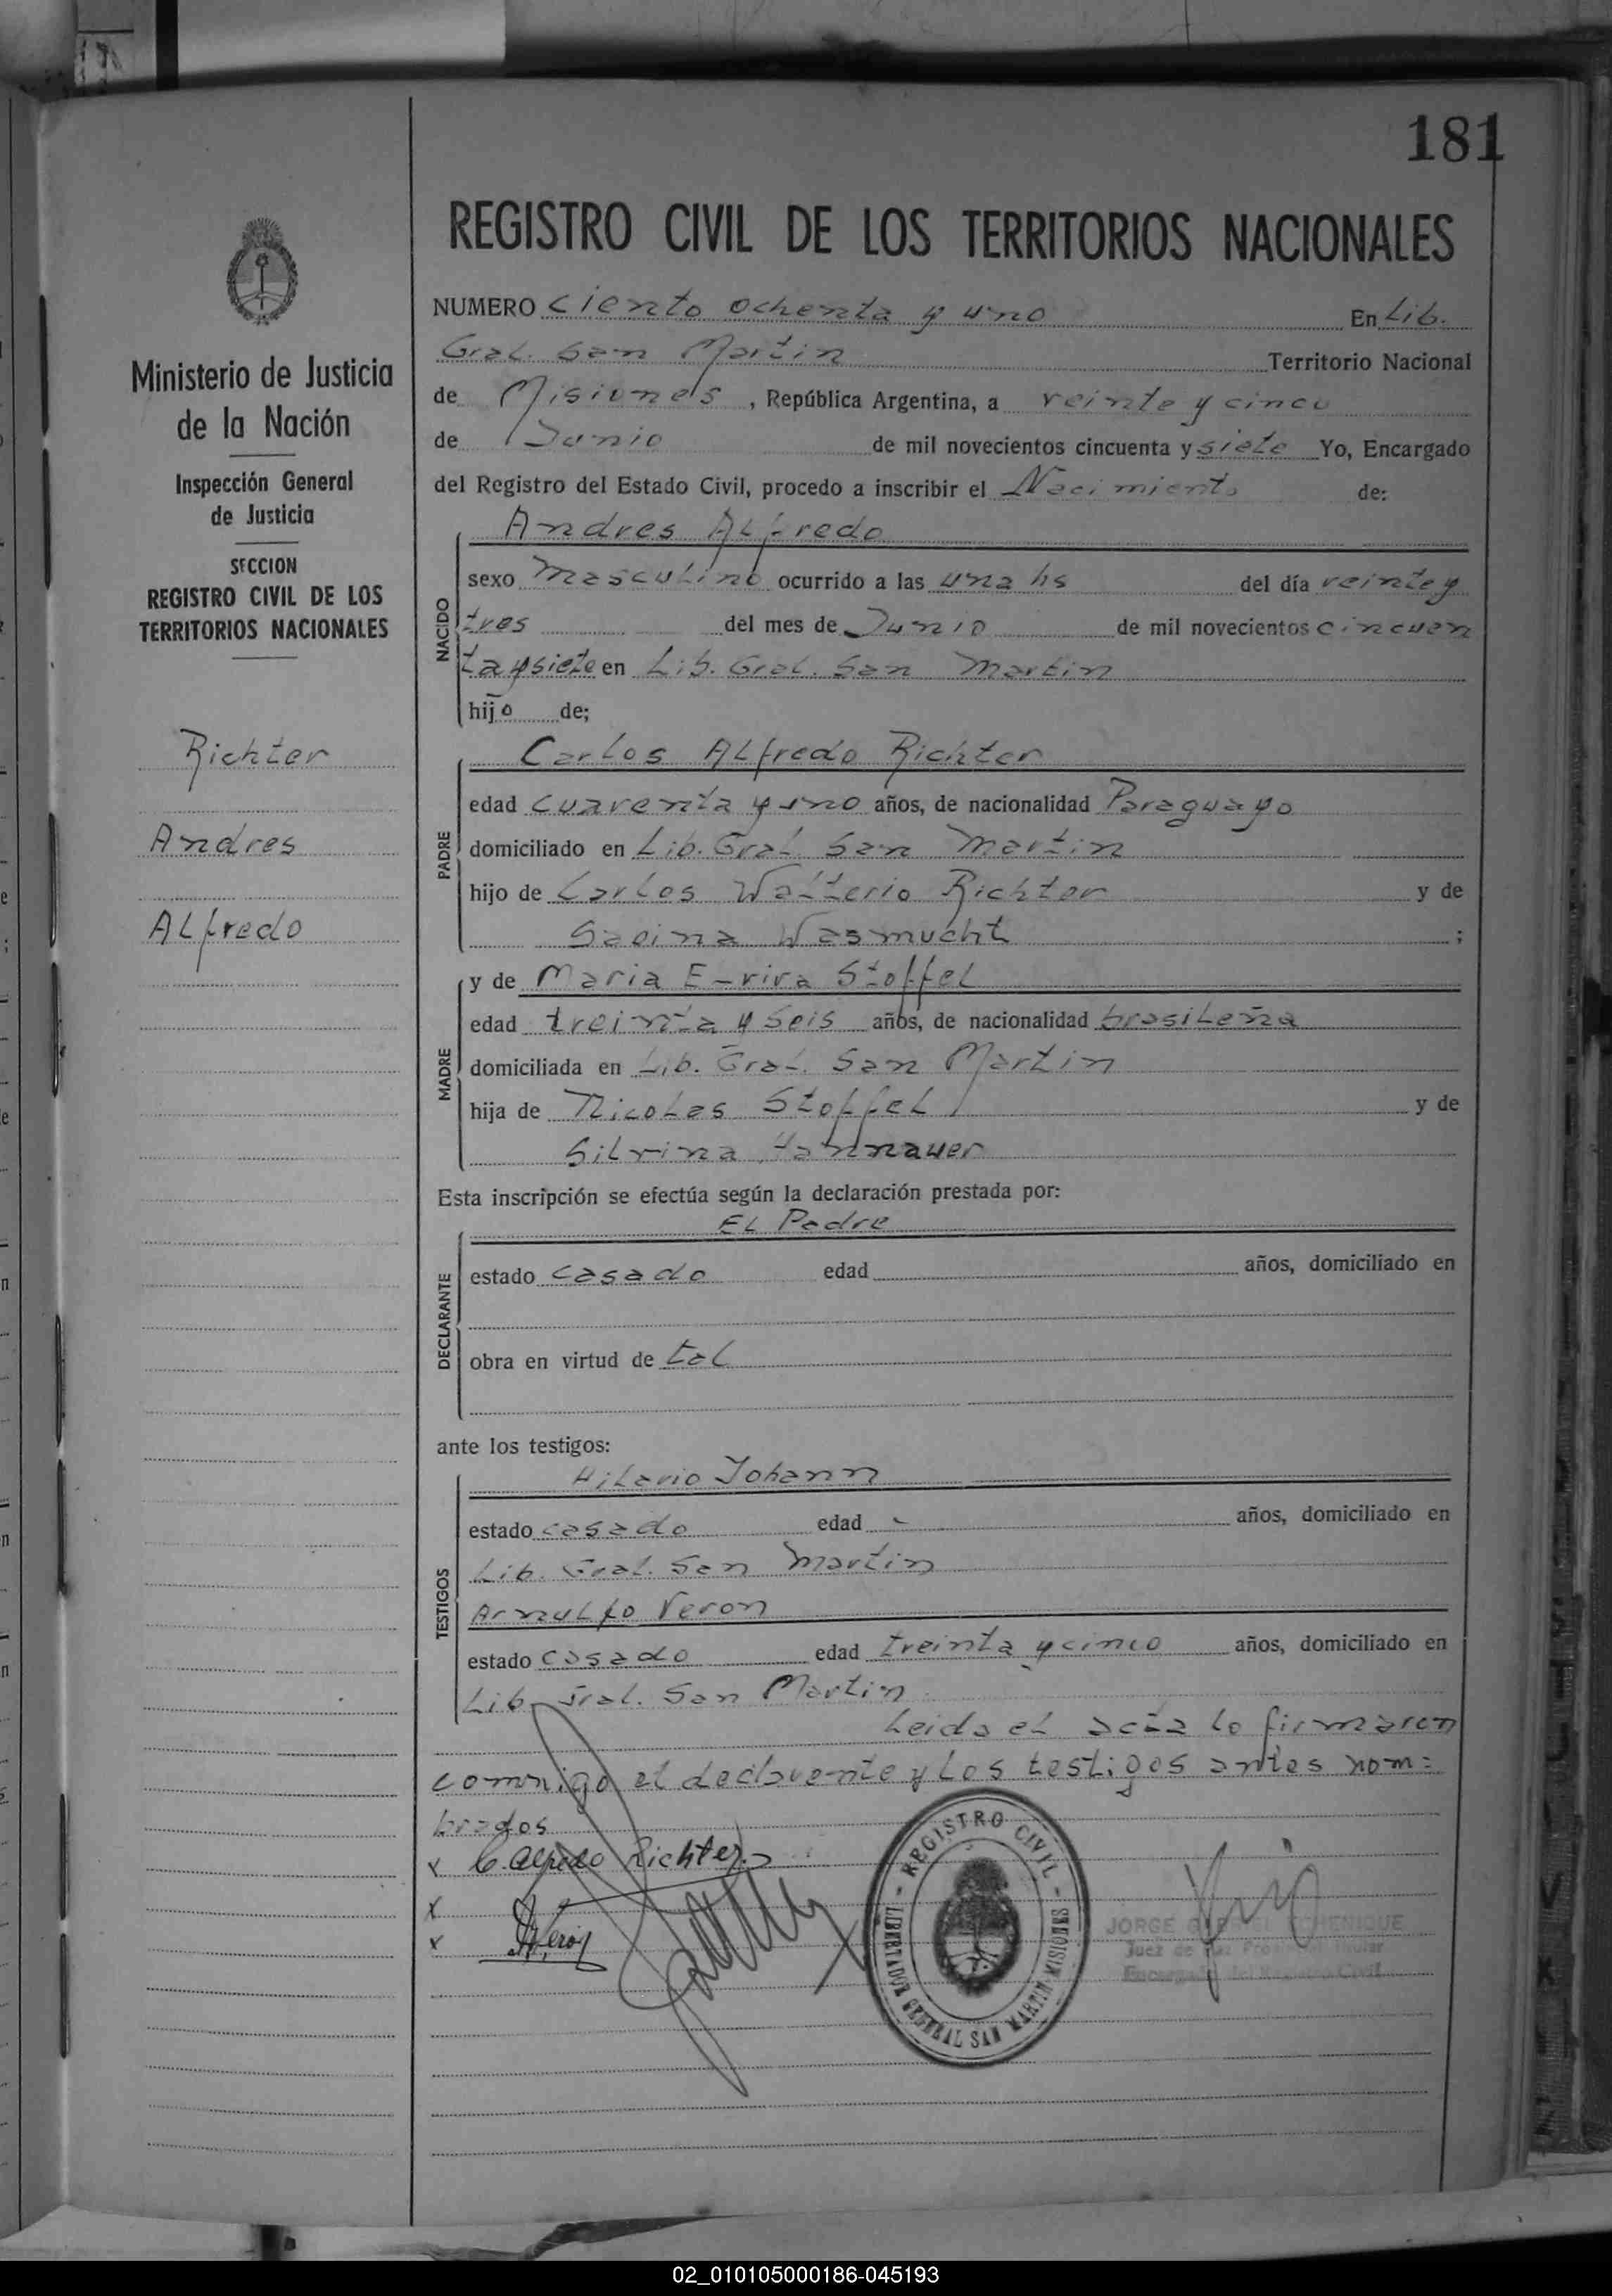 181
REGISTRO CIVIL DE LOS TERRITORIOS NACIONALES
Ministerio de Justicia
de la Nación
Inspección General
de Justicia
SECCION
REGISTRO CIVIL DE LOS
TERRITORIOS NACIONALES
Richter
Andres
Alfredo
NUMERO ciento ochenta y uno En Lib.
Gral. San Martin Territorio Nacional
de Misiones, República Argentina, a veinte y cinco
de Junio de mil novecientos cincuenta y siete Yo, Encargado
del Registro del Estado Civil, procedo a inscribir el Nacimiento de:
NACIDO
Andres Alfredo
sexo masculino ocurrido a las una hs del día veinte y
tres del mes de Junio de mil novecientos cincuen
ta y siete en Lib. Gral. San Martin
hijo de;
PADRE
Carlos Alfredo Richter
edad cuarenta y uno años, de nacionalidad Paraguayo
domiciliado en Lib. Gral. San Martin
hijo de Carlos Walterio Richter y de
Sabina Wasmucht ;
MADRE
y de Maria Stoffel
edad treinta y seis años, de nacionalidad brasileña
domiciliada en Lib. Gral. San Martin
hija de Nicolas Stoffel y de
Silvina Hannauer
Esta inscripción se efectúa según la declaración prestada por:
DECLARANTE
El Padre
estado casado edad años, domiciliado en
obra en virtud de tal
ante los testigos:
TESTIGOS
Hilario Johann
estado casado edad - años, domiciliado en
Lib. Gral. San Martin
Arnulfo Veron
estado casado edad treinta y cinco años, domiciliado en
Lib. Gral. San Martin
Leida el acta lo firmaron
conmigo el declarente y los testigos antes nom=
brados
x C. Alfredo Richter
x
x AVeron
REGISTRO CIVIL
LIBERTADOR GENERAL SAN MARTIN MISIONES
JORGE GABRIEL ECHENIQUE
Juez de Paz Titular
Encargado del Registro Civil
02_010105000186-045193